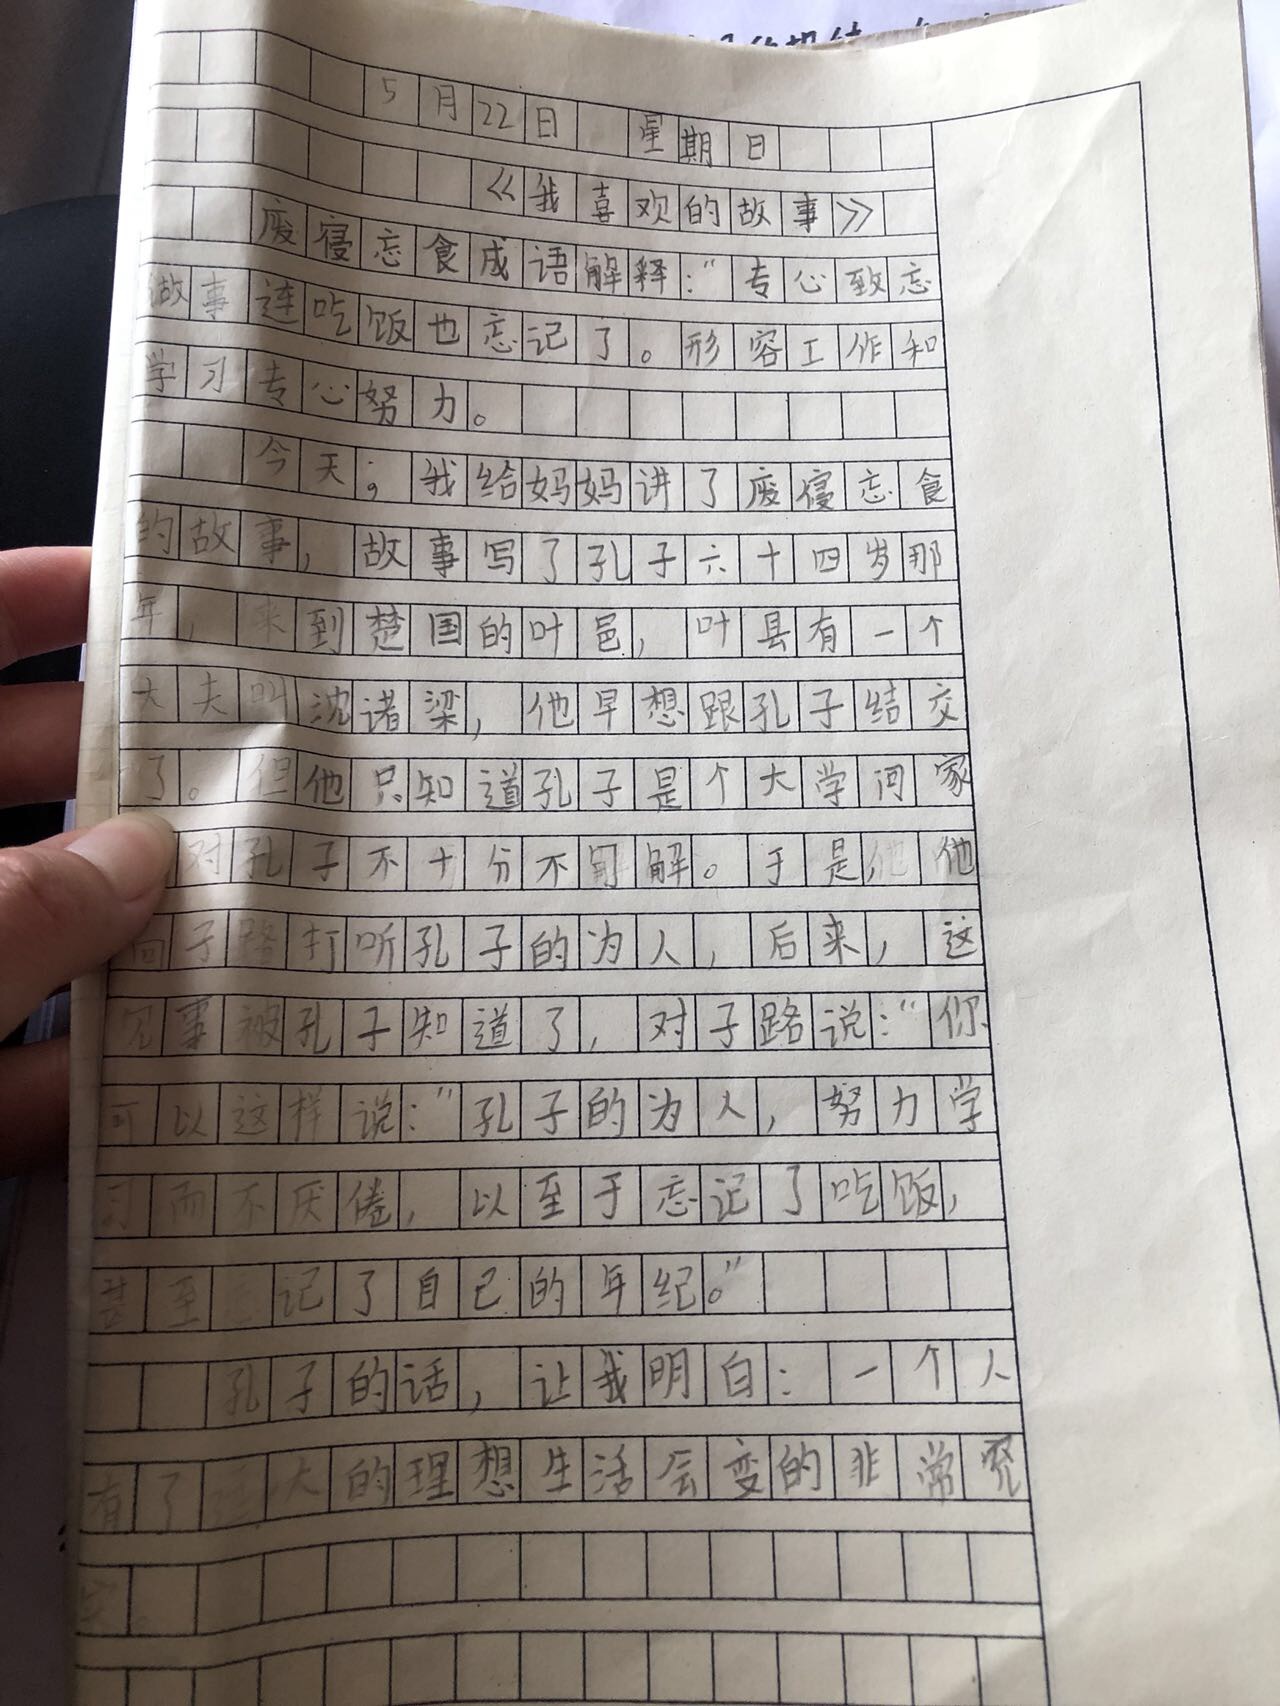 5月22日 星期日
《我喜欢的故事》
废寝忘食成语解释:“专心致忘
故事连吃饭也忘记了。形容工作和
学习专心努力。
今天,我给妈妈讲了废寝忘食
的故事,故事写了孔子六十四岁那
年,来到楚国的叶邑,叶县有一个
大夫叫沈诸梁,他早想跟孔子结交
了。但他只知道孔子是个大学问家
对孔子不十分不解。于是他
向子路打听孔子的为人,后来,这
事被孔子知道了,对子路说:“你
可以这样说:“孔子的为人,努力学
习而不厌倦,以至于忘记了吃饭,
甚至忘记了自己的年纪。”
孔子的话,让我明白:一个人
有了大的理想生活会变的非常充
实。